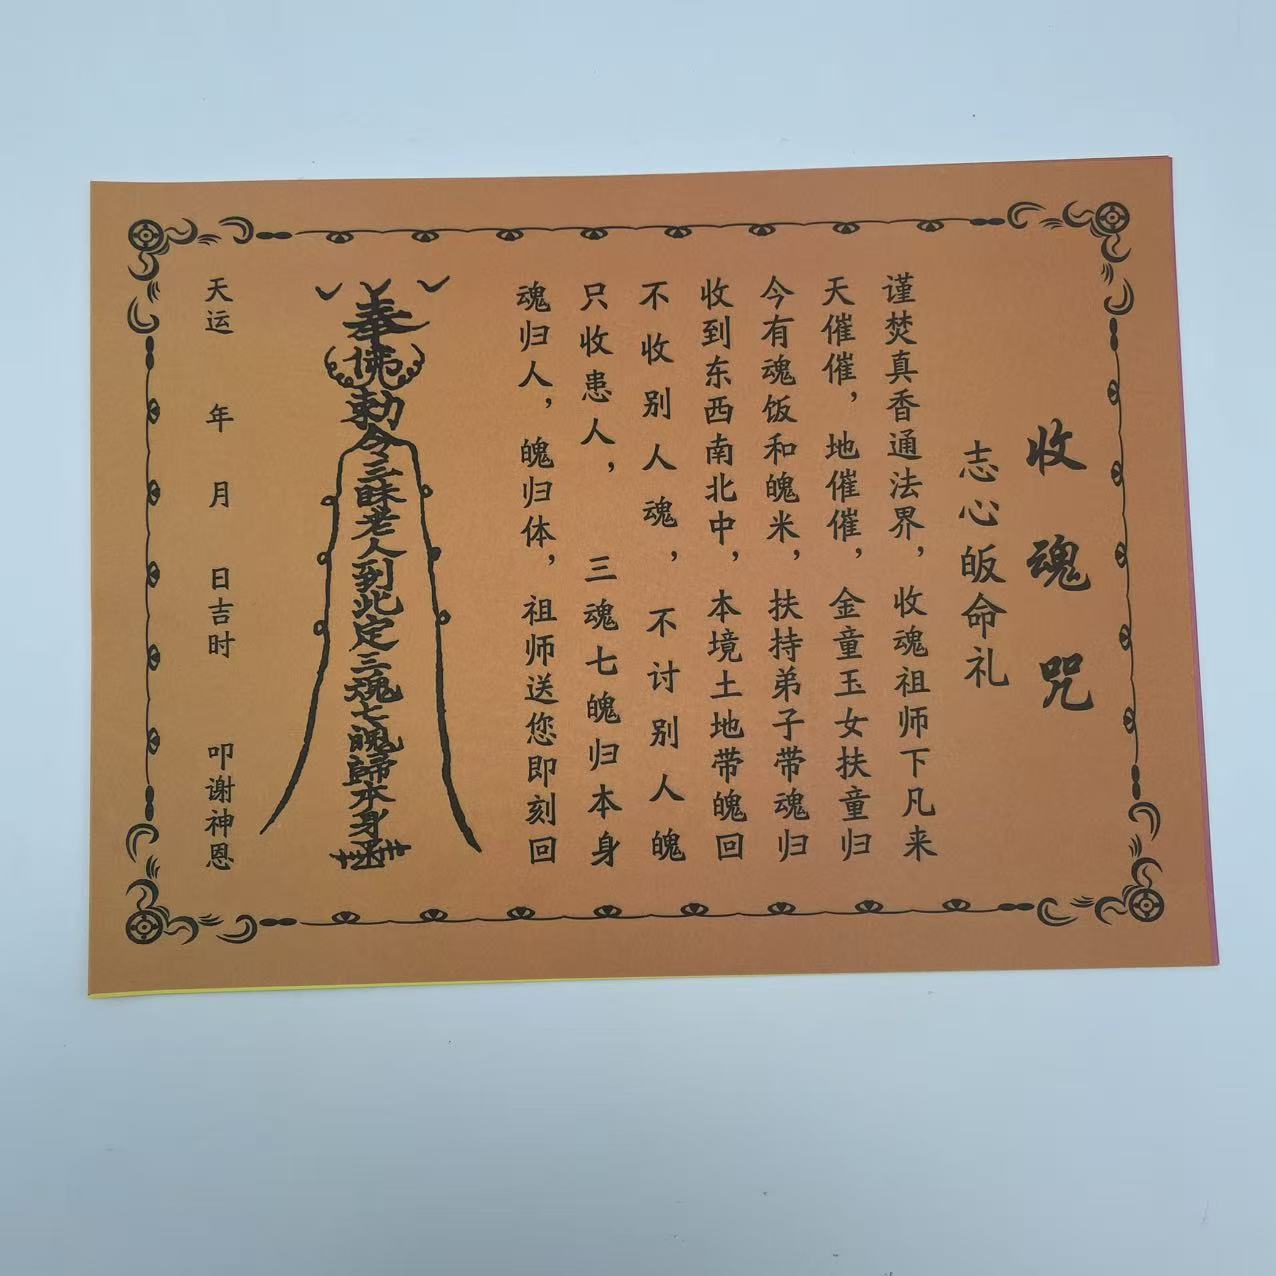 收魂咒
志心皈命礼
谨焚真香通法界，收魂祖师下凡来
天催催，地催催，金童玉女扶童归
今有魂饭和魄米，扶持弟子带魂归
收到东西南北中，本境土地带魄回
不收别人魂，不讨别人魄
只收患人，三魂七魄归本身
魂归人，魄归体，祖师送您即刻回
奉佛勅令三昧老人到此定三魂七魄歸本身
天运 年 月 日吉时 叩谢神恩